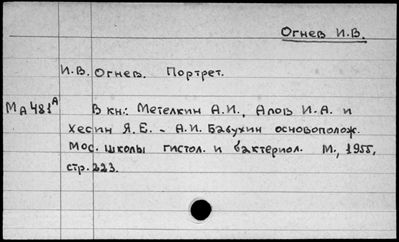 Огнев И.В.
И.В. Огнев. Портрет.
МА481А В кн.: Метелкин А.И., Алов И.А. и
Хесин Я.Е. - А.И. Бабухин основополож.
Мос. школы гистол. и бактериол. М., 1955,
стр. 223.